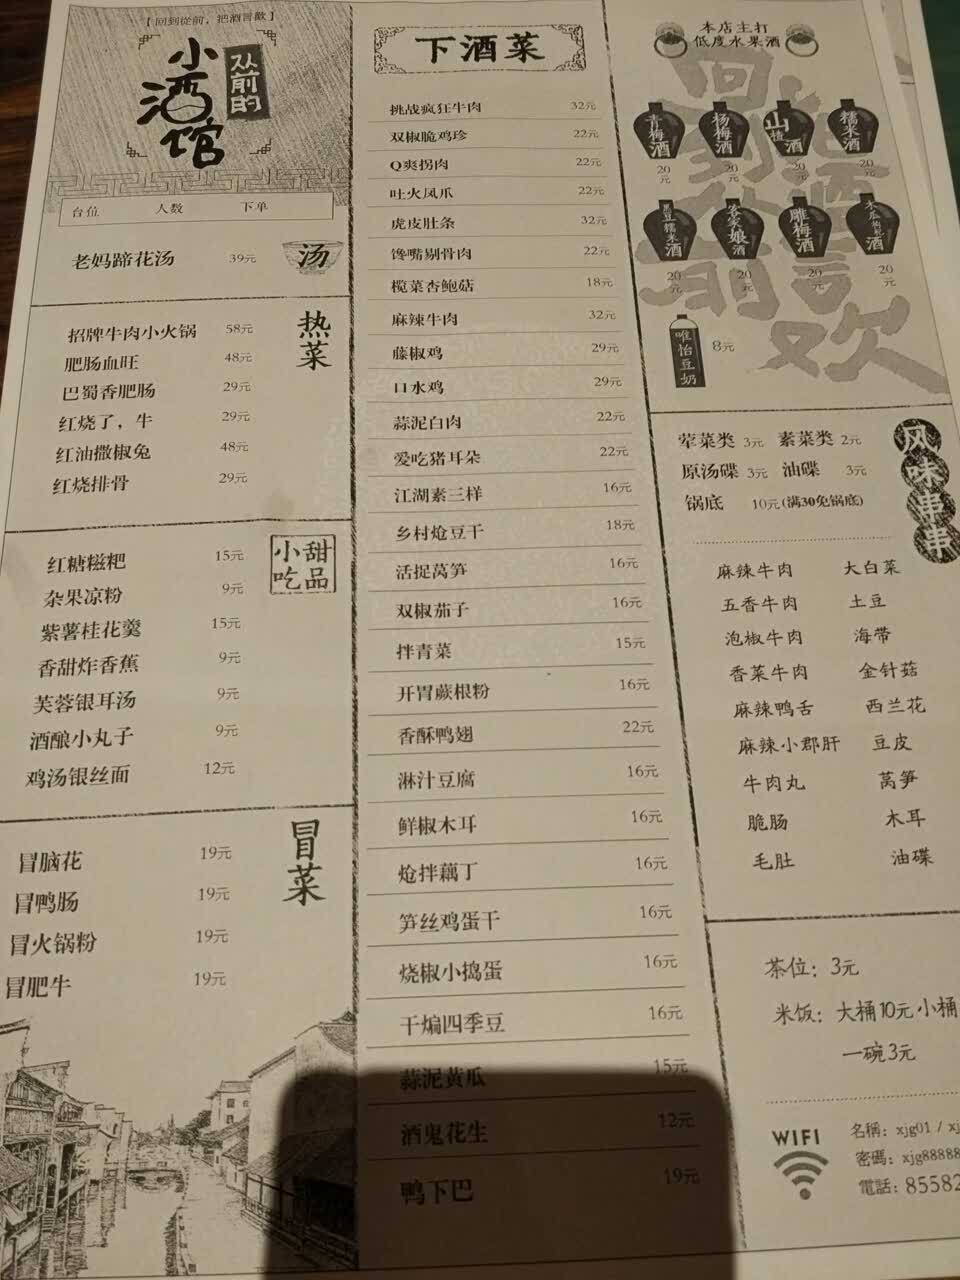 【回到從前，把酒言歡】
从前的
小酒馆
台位 人数 下单
汤
老妈蹄花汤 39元
热菜
招牌牛肉小火锅 58元
肥肠血旺 48元
巴蜀香肥肠 29元
红烧了，牛 29元
红油撒椒兔 48元
红烧排骨 29元
甜品小吃
红糖糍粑 15元
杂果凉粉 9元
紫薯桂花羹 15元
香甜炸香蕉 9元
芙蓉银耳汤 9元
酒酿小丸子 9元
鸡汤银丝面 12元
冒菜
冒脑花 19元
冒鸭肠 19元
冒火锅粉 19元
冒肥牛 19元
下酒菜
挑战疯狂牛肉 32元
双椒脆鸡珍 22元
Q爽拐肉 22元
吐火凤爪 22元
虎皮肚条 32元
馋嘴剔骨肉 22元
榄菜杏鲍菇 18元
麻辣牛肉 32元
藤椒鸡 29元
口水鸡 29元
蒜泥白肉 22元
爱吃猪耳朵 22元
江湖素三样 16元
乡村炝豆干 18元
活捉莴笋 16元
双椒茄子 16元
拌青菜 15元
开胃蕨根粉 16元
香酥鸭翅 22元
淋汁豆腐 16元
鲜椒木耳 16元
炝拌藕丁 16元
笋丝鸡蛋干 16元
烧椒小捣蛋 16元
干煸四季豆 16元
蒜泥黄瓜 15元
酒鬼花生 12元
鸭下巴 19元
本店主打
低度水果酒
青梅酒 杨梅酒 山楂酒 糯米酒
20元 20元 20元 20元
黑豆糯米酒 客家娘酒 雕梅酒 木瓜枸杞酒
20元 20元 20元 20元
唯怡豆奶 8元
风味串串
荤菜类 3元 素菜类 2元
原汤碟 3元 油碟 3元
锅底 10元(满30免锅底)
麻辣牛肉 大白菜
五香牛肉 土豆
泡椒牛肉 海带
香菜牛肉 金针菇
麻辣鸭舌 西兰花
麻辣小郡肝 豆皮
牛肉丸 莴笋
脆肠 木耳
毛肚 油碟
茶位：3元
米饭：大桶10元 小桶
一碗3元
WIFI
名稱：xjg01 / xj
密碼：xjg88888
電話：85582